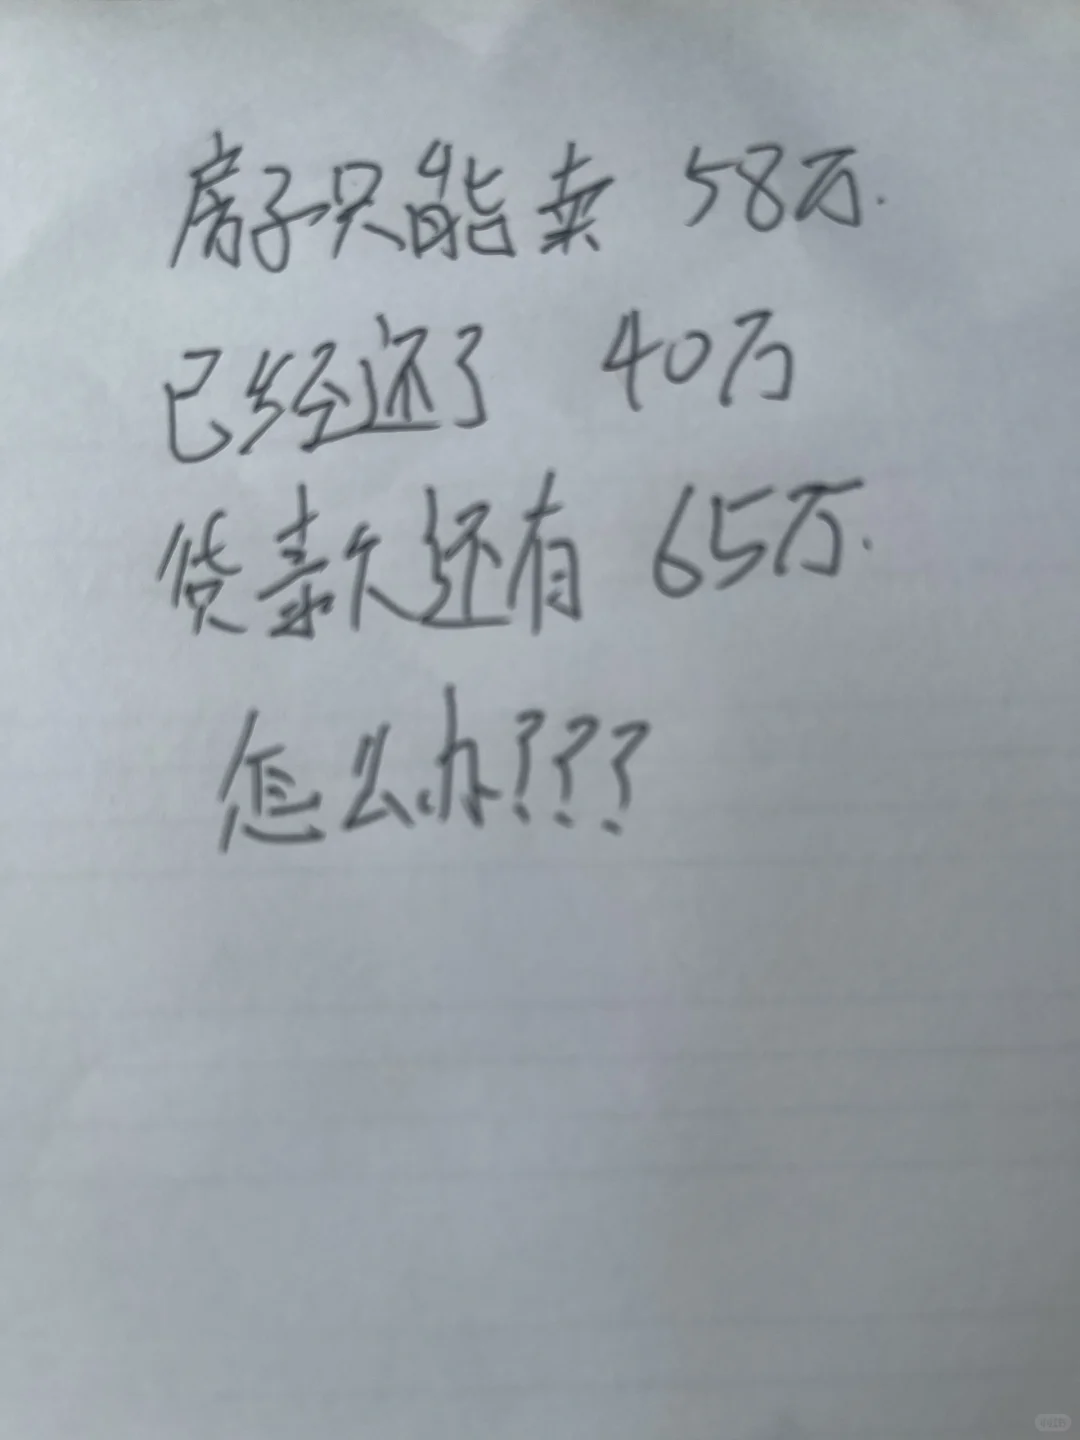 房子只能卖 58万.
已经还了 40万
贷款还有 65万.
怎么办???